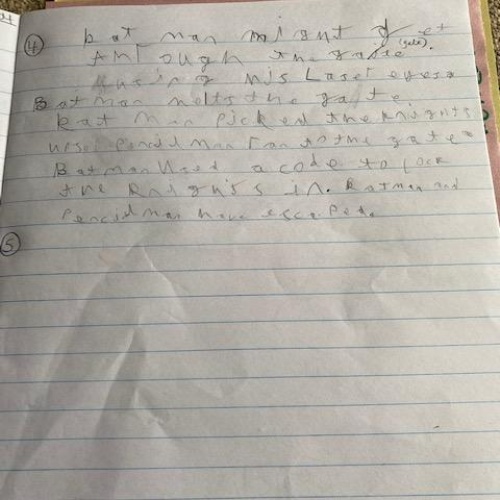 4 bat man might get
through the gate (gate).
using his Laser eyes
Batman melts the gate.
Bat man Picked the knights
nose. Pencil man ran to the gate
Batman used a code to lock
the knights in. Batman and
Pencil man have escaped.
5